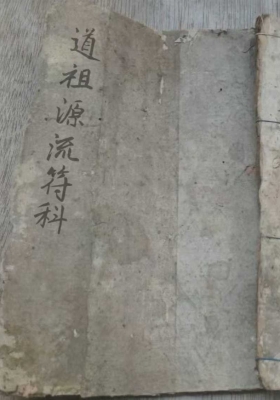 道祖源流符科